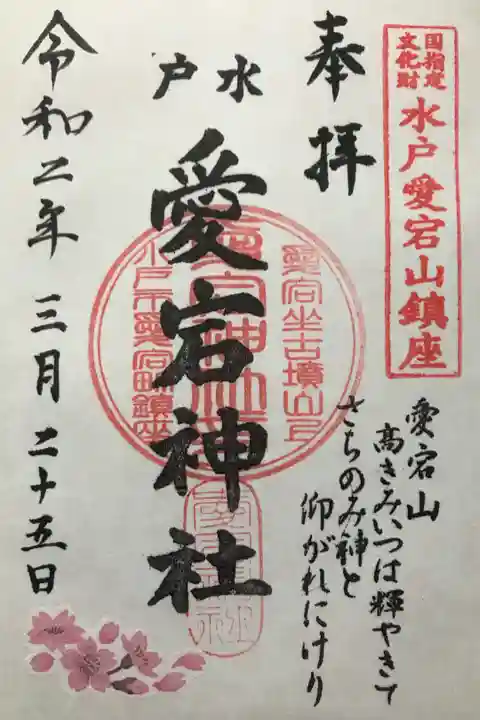 国指定
文化財
水戸愛宕山鎮座
奉拝
水戸
愛宕神社
愛宕坐古墳山上
水戸市愛宕町鎮座
愛宕山
高きみいつは輝やきて
さちのみ神と
仰がれにけり
令和二年 三月 二十五日